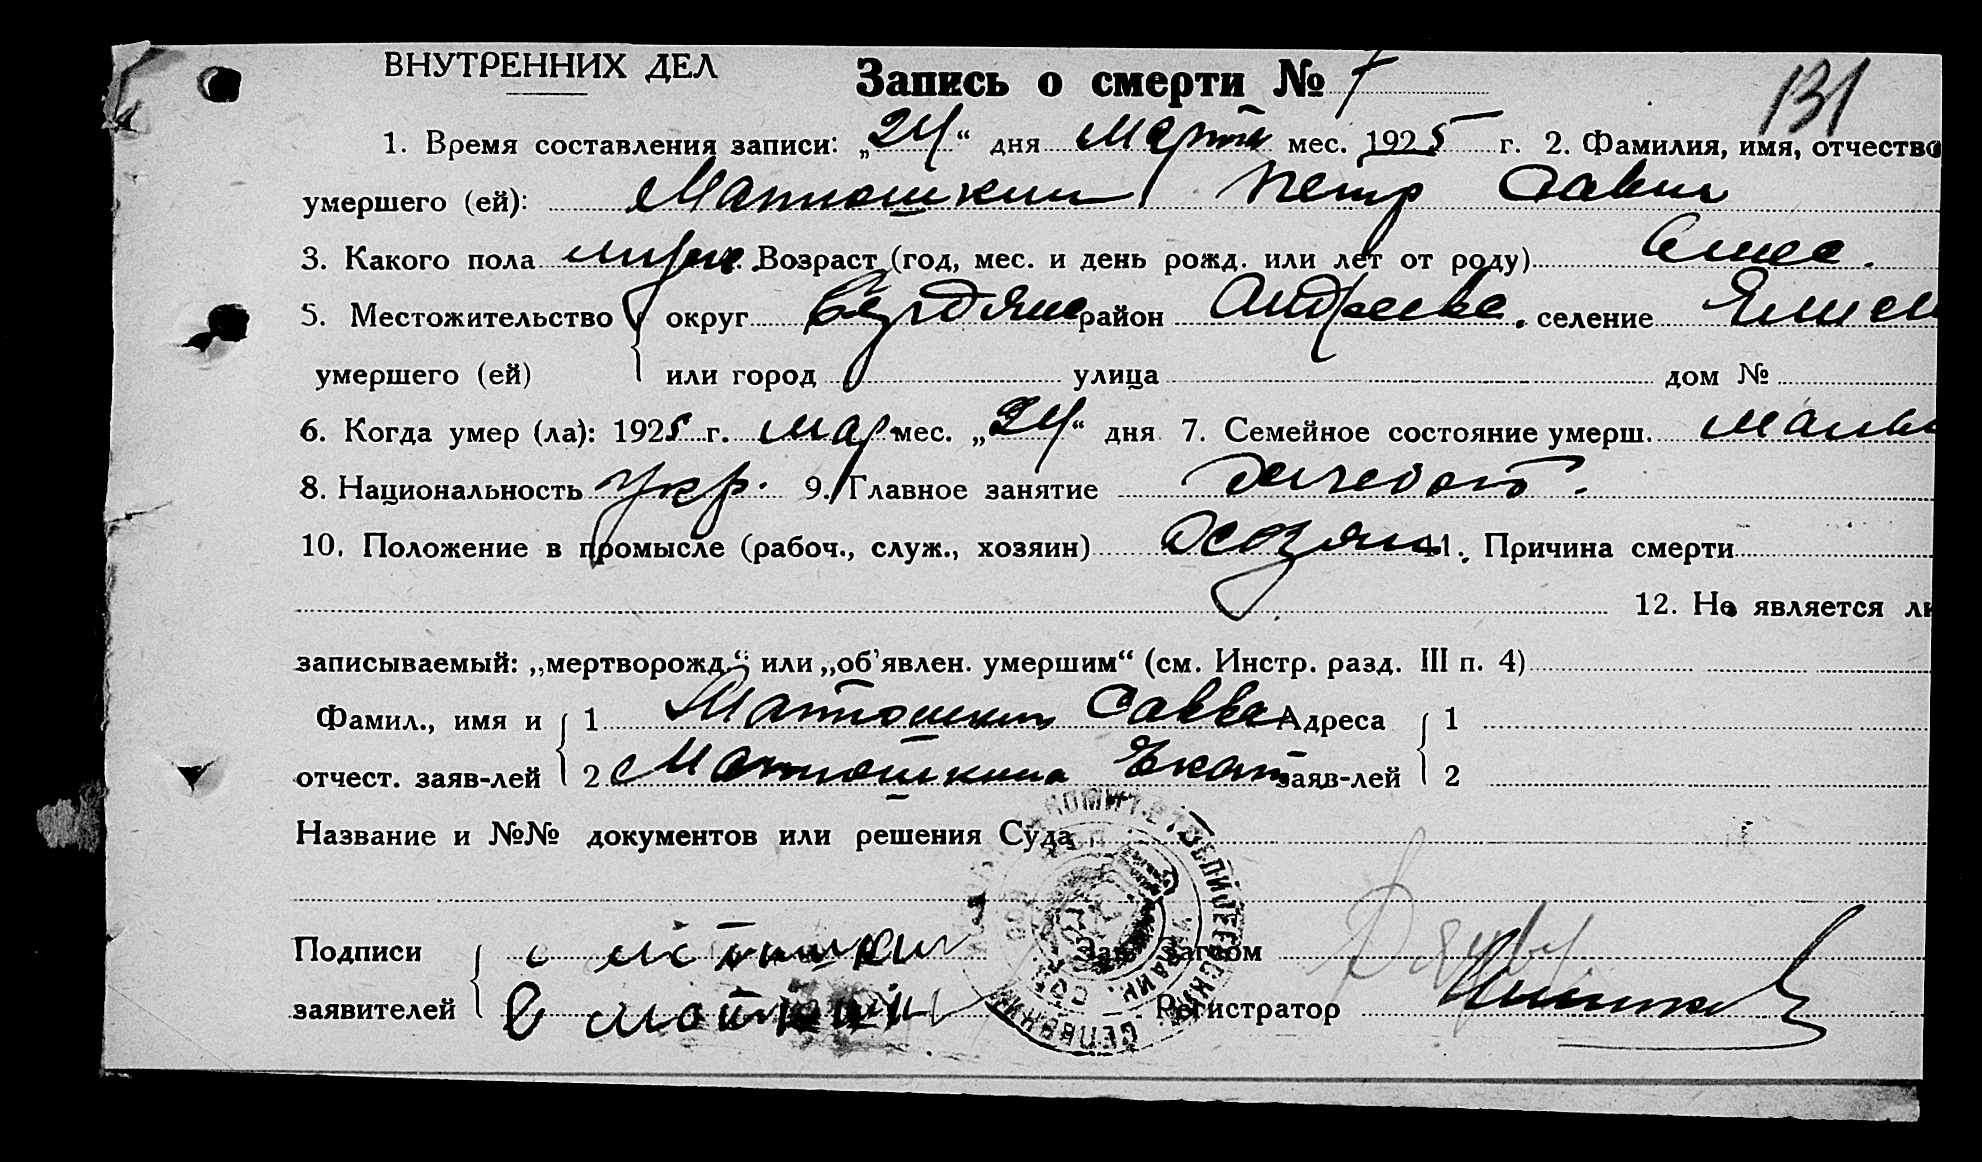 ВНУТРЕННИХ ДЕЛ
Запись о смерти № 7
131
1. Время составления записи: „24“ дня Марта мес. 1925 г. 2. Фамилия, имя, отчество
умершего (ей): Матюшкин Петр Савич
3. Какого пола муж. Возраст (год, мес. и день рожд. или лет от роду)
5. Местожительство округ Бердянс район Андреевс. селение
умершего (ей) или город улица дом №
6. Когда умер (ла): 1925 г. мар. мес. „24“ дня 7. Семейное состояние умерш.
8. Национальность укр. 9. Главное занятие
10. Положение в промысле (рабоч., служ., хозяин) 11. Причина смерти
12. Не является ли
записываемый: „мертворожд.“ или „об’явлен. умершим“ (см. Инстр. разд. III п. 4)
Фамил., имя и 1 Матюшкин Савва Адреса 1
отчест. заяв-лей 2 Матюшкина Екат заяв-лей 2
Название и №№ документов или решения Суда
Подписи Зав. Загсом
заявителей Регистратор